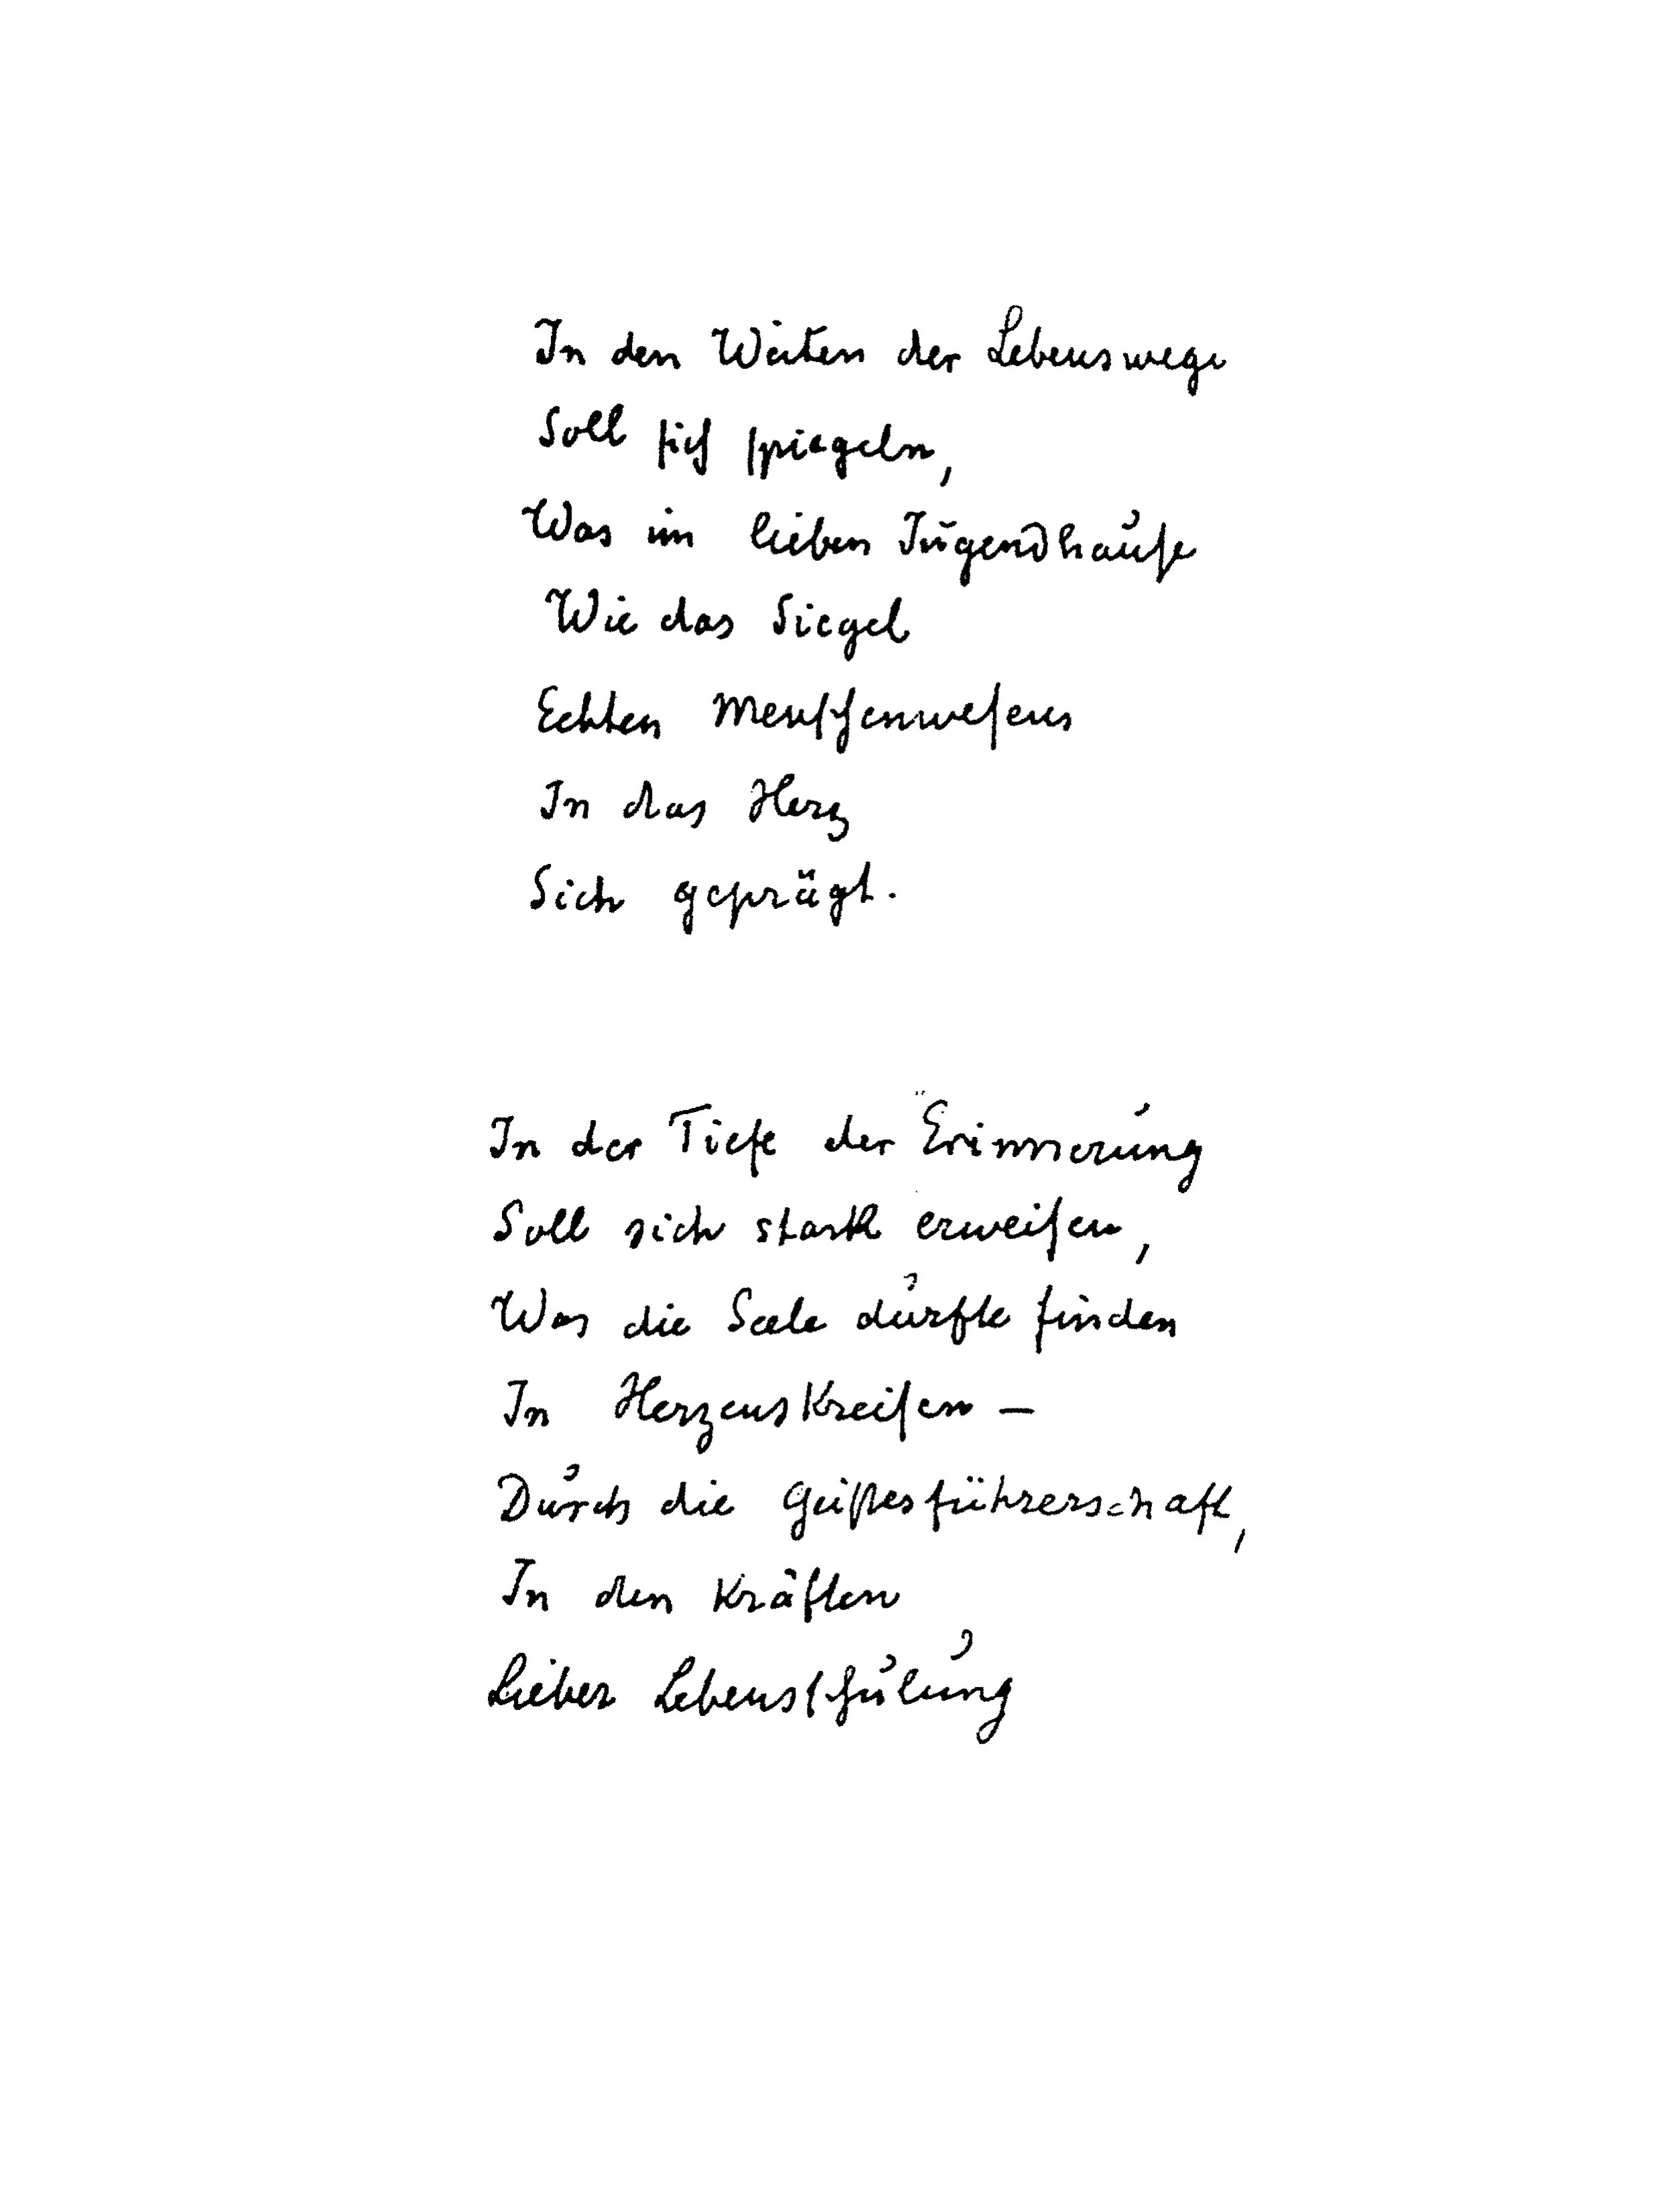 In den Weiten der Lebenswege
Soll sich spiegeln,
Was im lieben Jugendhause
Wie das Siegel
Echten Menschenwesens
In das Herz
Sich geprägt.
In der Tiefe der Erinnerung
Soll sich stark erweisen,
Was die Seele durfte finden
In Herzenskreisen –
Durch die Geistesführerschaft,
In den Kräften
Lieber Lebensschulung